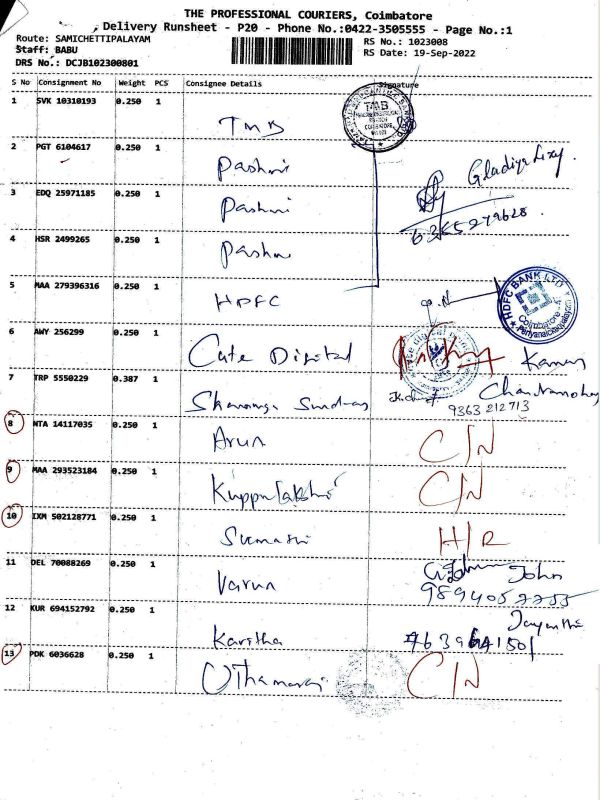 THE PROFESSIONAL COURIERS, Coimbatore
Delivery Runsheet - P20 - Phone No.:0422-3505555 - Page No.:1
Route: SAMICHETTIPALAYAM
RS No.: 1023008
Staff: BABU
RS Date: 19-Sep-2022
DRS No.: DCJB102300801
S No Consignment No Weight PCS Consignee Details Signature
1 SVK 10310193 0.250 1
TMB
TMB
COIMBATORE
2 PGT 6104617 0.250 1
Pashmi
3 EDQ 25971185 0.250 1
Pashmi
6365279628
4 HSR 2499265 0.250 1
Pashmi
5 MAA 279396316 0.250 1
HPFC
HDFC BANK LTD
Coimbatore
6 AWY 256299 0.250 1
Cute Digital
7 TRP 5550229 0.387 1
9363 212713
8 NTA 14117035 0.250 1
Arun C/N
9 MAA 293523184 0.250 1
Kuppulakshmi C/N
10 IXM 502128771 0.250 1
Sumathi H/R
11 DEL 70088269 0.250 1
Varun John
9894052255
12 KUR 694152792 0.250 1
Kavitha Jayanthi
7639641501
13 PDK 6036628 0.250 1
C/N